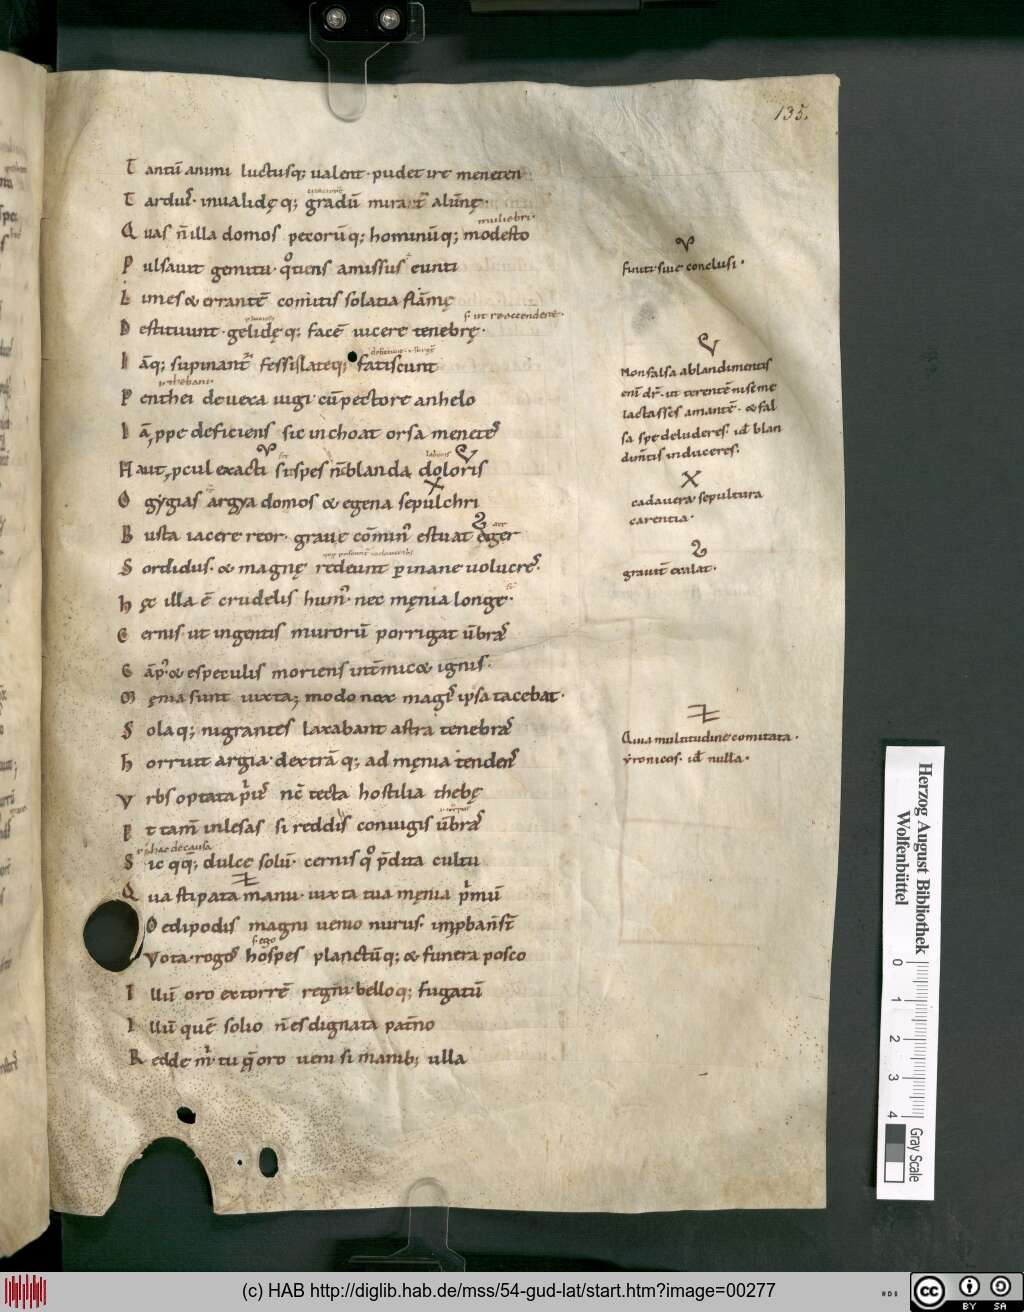 135.
Tantū animi luctusq; ualent· pudet ire meneten
Tardus̄· inualidę q; gradū mirat̄ alūnę·
Quas n̄ illa domos pecorūq; hominūq; modesto
muliebri·
Pulsauit gemitu· qͦtiens amissus eunti
Limes & errantē comitis solatia flāmę
Destituunt· gelidę q; facē uicere tenebrę·
s· ut reaccenderet·
Iāq; supinant̄ fessis lateq; fatiscunt
Penthei deuexa iugi· cū pectore anhelo
Iā ppe deficiens sic inchoat orsa menetes̄
Haut pcul exacti si spes n̄ blanda doloris
Ogygias argya domos & egena sepulchri
Busta iacere reor· graue cōmun᷒ estuat aer
Sordidus· & magnę redeunt p inane uolucres̄·
hęc illa ē crudelis hum᷒· nec męnia longe·
Cernis· ut ingentis murorū porrigat ūbras
Cāp᷒· & e speculis moriens int̄mic& ignis·
Męnia sunt iuxta; modo nox magis̄ ipsa tacebat·
Solaq; nigrantes laxabant astra tenebras
horruit argia· dextrā q; ad męnia tendens̄
Vrbs optata pͥus̄ nc̄ tecta hostilia thebę
Et tam̄ inlesas si reddis coniugis ūbras
Sic qq; dulce solū· cernis qͦ p̄dita cultu
Qua stipata manu· iuxta tua męnia pͥmū
Oedipodis magni uenio nurus· impban̄ st̄
Vota· rogos̄ hospes planctūq; & funera posco
s· ego
Illū oro extorrē regni· belloq; fugatū
Illū quē solio n̄ es dignata pat̄no
Redde mͥ tu q̨ oro ueni si manib; ulla
finiti siue conclusi·
Non falsa a blandimentis
eni dr̄· ut terentē nisi me
lactasses amantē· & fal
sa spe deluderes· id̄ blan
dim̄tis induceres·
cadauera sepultura
carentia·
grauit̄ exalat·
Quia multitudine comitata·
yronicos· id̄ nulla·
Herzog August Bibliothek
Wolfenbüttel
0 1 2 3 4
Gray Scale
(c) HAB http://diglib.hab.de/mss/54-gud-lat/start.htm?image=00277
cc BY SA